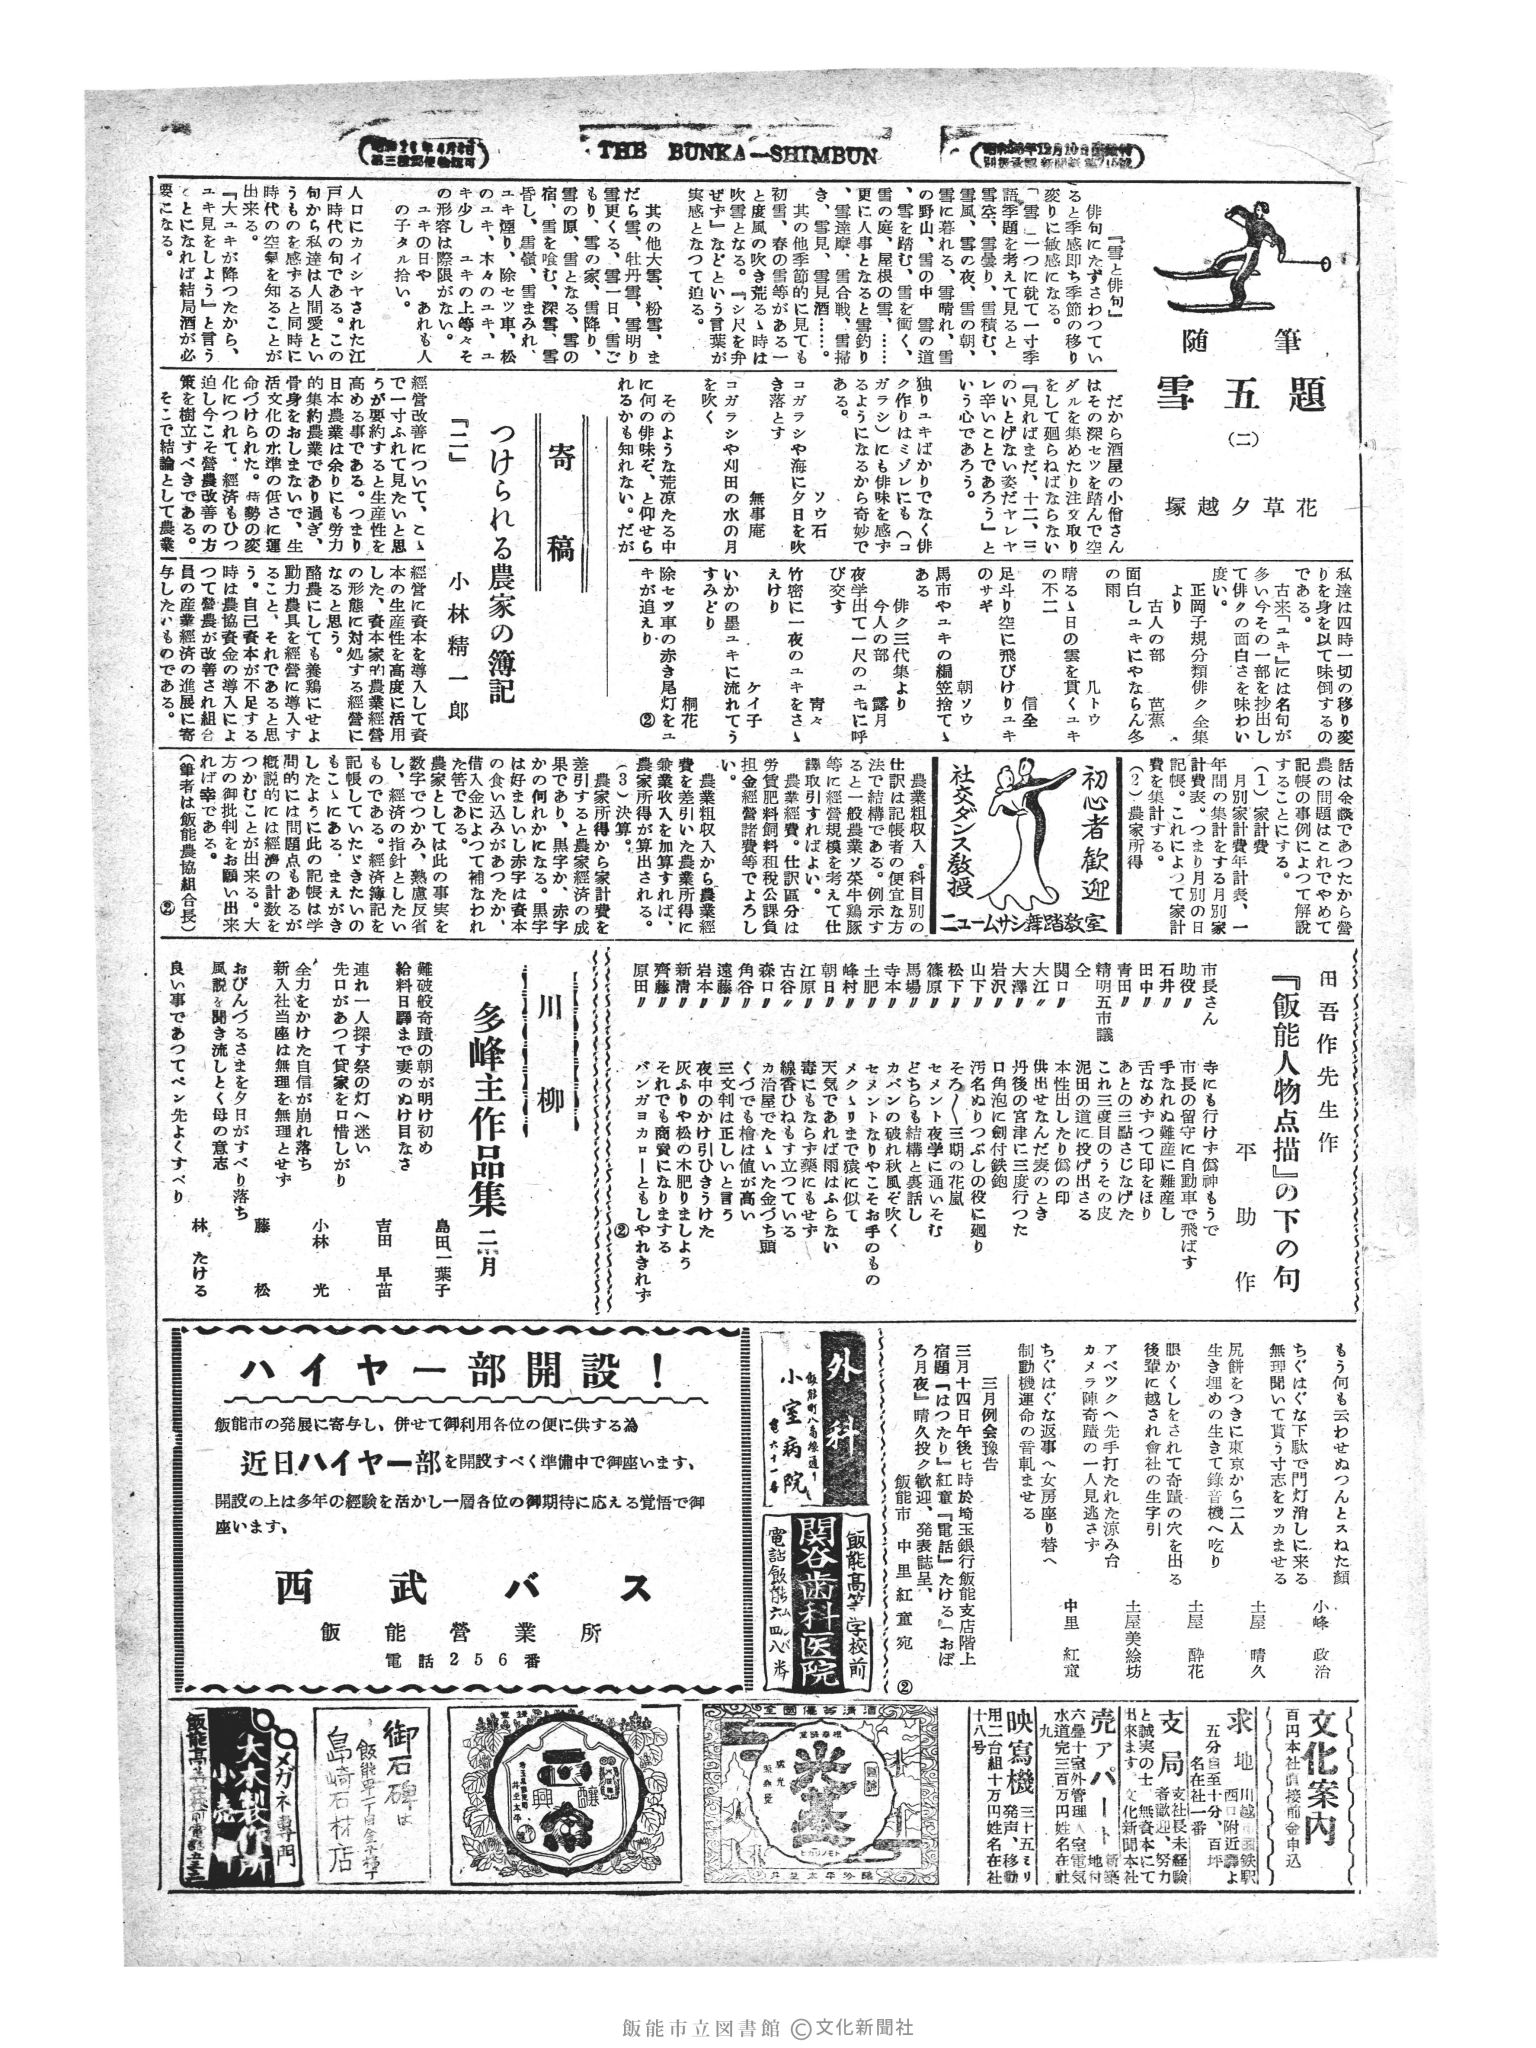 THE BUNKA—SHIMBUN
随筆
雪五題
(二)
花草夕越塚
『雪と俳句』
俳句にたずさわつてい
ると季感即ち季節の移り
変りに敏感になる。
「雪」一つに就て一寸季
語季題を考えて見ると
雪空、雪曇り、雪積む、
雪風、雪の夜、雪の朝、
雪に暮れる、雪晴れ、雪
の野山、雪の中 雪の道
、雪を踏む、雪を衝く、
雪の庭、屋根の雪、……
更に人事となると雪釣り
、雪達摩、雪合戦、雪掃
き、雪見、雪見酒……。
其の他季節的に見ても
初雪、春の雪等がある一
と度風の吹き荒るゝ時は
吹雪となる。『シ尺を弁
ぜず』などという言葉が
実感となつて迫る。
其の他大雪、粉雪、ま
だら雪、牡丹雪、雪明り
雪更くる、雪一日、雪ご
もり、雪の家、雪降り、
雪の原、雪となる、雪の
宿、雪を喰む、深雪、雪
皆し、雪嶺、雪まみれ、
ユキ煙り、除セツ車、松
のユキ、木々のユキ、ユ
キ少し ユキの上等々そ
の形容は際限がない。
ユキの日や あれも人
の子タル拾い。
人口にカイシヤされた江
戸時代の句である。この
句から私達は人間愛とい
うものを感ずると同時に
時代の空気を知ることが
出来る。
『大ユキが降つたから、
ユキ見をしよう』と言う
ことになれば結局酒が必
要になる。
だから酒屋の小僧さん
はその深セツを踏んで空
ダルを集めたり注文取り
をして廻らねばならない
『見ればまだ、十二、三
のいとげない姿だヤレヤ
レ辛いことであろう』と
いう心であろう。
独りユキばかりでなく俳
ク作りはミゾレにも(コ
ガラシ)にも俳味を感ず
るようになるから奇妙で
ある。
ソウ石
コガラシや海に夕日を吹
き落とす
無事庵
コガラシや刈田の水の月
を吹く
そのような荒凉たる中
に何の俳味ぞ、と仰せら
れるかも知れない。だが
私達は四時一切の移り変
りを身を以て味倒するの
である。
古来「ユキ』には名句が
多い今その一部を抄出し
て俳クの面白さを味わい
度い。
正岡子規分類俳ク全集
より
古人の部 芭蕉
面白しユキにやならん冬
の雨
几トウ
晴るゝ日の雲を貫くユキ
の不二
信全
足斗り空に飛びけりユキ
のサギ
朝ソウ
馬市やユキの編笠捨てゝ
ある
俳ク三代集より
今人の部 露月
夜学出て一尺のユキに呼
び交す
青々
竹密に一夜のユキをさゝ
えけり
ケイ子
いかの墨ユキに流れてう
すみどり
桐花
除セツ車の赤き尾灯をユ
キが追えり ②
寄稿
つけられる農家の簿記
『二』
小林精一郎
経営改善について、こゝ
で一寸ふれて見たいと思
うが要約すると生産性を
高める事である。つまり
日本農業は余りにも労力
的集約農業であり過ぎ、
骨身をおしまないで、生
活文化の水準の低さに運
命づけられた。時勢の変
化につれて。経済もひつ
迫し今こそ営農改善の方
策を樹立すべきである。
そこで結論として農業
経営に資本を導入して資
本の生産性を高度に活用
した、資本家的農業経営
の形態に対処する経営に
なると思う。
酪農にしても養鶏にせよ
動力農具を経営に導入す
ること、それであると思
う。自己資本が不足する
時は農協資金の導入によ
つて営農が改善され組合
員の産業経済の進展に寄
与したいものである。
話は余談であつたから営
農の問題はこれでやめて
記帳の事例によつて解説
することにする。
(1)家計費
月別家計費年計表、一
年間の集計をする月別家
計費表。つまり月別の日
記帳。これによつて家計
費を集計する。
(2)農家所得
農業粗収入。科目別の
仕訳は記帳者の便宜な方
法で結構である。例示す
ると一般農業ソ菜牛鶏豚
等に経営規模を考えて仕
譯取引すればよい。
農業経費。仕訳区分は
労賃肥料飼料租税公課負
担金経営諸費等でよろし
い。
農業粗収入から農業経
費を差引いた農業所得に
兼業収入を加算すれば、
農家所得が算出される。
(3)決算。
農家所得から家計費を
差引すると農家経済の成
果であり、黒字か、赤字
かの何れかになる。黒字
は好ましいし赤字は資本
の食い込みがあつたか、
借入金によつて補なわれ
た筈である。
農家としては此の事実を
数字でつかみ、熟慮反省
し、経済の指針としたい
ものである。経済簿記を
記帳していたゞきたいの
もこゝにある。まえがき
したように此の記帳は学
問的には問題点もあるが
概説的には経済の計数を
つかむことが出来る。大
方の御批判をお願い出来
れば幸である。
(筆者は飯能農協組合長)
②
初心者歓迎
社交ダンス教授
ニュームサシ舞踏教室
田吾作先生作
『飯能人物点描』の下の句
平助作
市長さん 寺にも行けず偽神もうで
助役〃 市長の留守に自動車で飛ばす
石井〃 手なれぬ難産に難産し
田中〃 舌なめずつて印をほり
青田〃 あとの三點さじなげた
精明五市議 これ三度目のうその皮
仝 泥田の道に投げ出さる
関口〃 本性出したり偽の印
大江〃 供出せなんだ麦のとき
大澤〃 丹後の宮津に三度行つた
岩沢〃 口角泡に剣付鉄鉋
山下〃 汚名ぬりつぶしの役に廻り
松下〃 そろ〳〵三期の花嵐
篠原〃 セメント夜学に通いそむ
馬場〃 どちらも結構と裏話し
寺本〃 カバンの破れ秋風ぞ吹く
土肥〃 セメントなりやこそお手のもの
峰村〃 メクゝりまで猿に似て
朝日〃 天気であれば雨はふらない
江原〃 毒にもならず薬にもせず
古谷〃 線香ひねもす立つている
森口〃 カ治屋でたゝいた金づち頭
角谷〃 くづでも檜は値が高い
遠藤〃 三文判は正しいと言う
岩本〃 夜中のかけ引ひきうけた
新濟〃 灰ふりや松の木肥りましよう
齊藤〃 それでも商賣になりまする
原田〃 バンガヨカローともしやれきれず
②
川柳
多峰主作品集 二月
難破般奇蹟の朝が明け初め
給料日驛まで妻のぬけ目なさ
島田一葉子
連れ一人探す祭の灯へ迷い
先口があつて貸家を口惜しがり
吉田 早苗
全力をかけた自信が崩れ落ち
新入社当座は無理を無理とせず
小林 光
おびんづるさまを夕日がすべり落ち
風説を聞き流しとく母の意志
藤 松
良い事であつてペン先よくすべり
林 たける
もう何も云わせぬつんとスねた顔
小峰 政治
ちぐはぐな下駄で門灯消しに来る
無理聞いて貰う寸志をツカませる
土屋 晴久
尻餅をつきに東京から二人
生き埋めの生きて錄音機へ吃り
土屋 酔花
眼かくしをされて奇蹟の穴を出る
後輩に越され會社の生字引
土屋美絵坊
アベツクへ先手打たれた涼み台
カメラ陣奇蹟の一人見逃さず
中里 紅童
ちぐはぐな返事へ女房座り替へ
制動機運命の音軋ませる
三月例会豫告
三月十四日午後七時於埼玉銀行飯能支店階上
宿題『はつたり』紅童『電話』たける『おぼ
ろ月夜』晴久投ク歓迎、発表誌呈、
飯能市 中里紅童宛 ②
外科
飯能町八高線通り
小室病院
電六十一番
飯能高等学校前
関谷歯科医院
ハイヤー部開設！
飯能市の発展に寄与し、併せて御利用各位の便に供する為
近日ハイヤー部を開設すべく準備中で御座います、
開設の上は多年の経驗を活かし一層各位の御期待に応える覚悟で御
座います、
西武バス
飯能營業所
電話256番
文化案内
百円本社直接前金申込
求地
五分自至十分、百坪
名在社一番
支局
支社長未経験
者歓迎、努力
と誠実の士、無資本にて
出来ます 文化新聞本社
売アパート
新築
地付
六疊十室外管理人室電気
水道完三百万円姓名在社
九
映寫機
三十五ミリ
発声、移動
用二台組十万円姓名在社
十八号
全國優等清酒
醸興
御石碑は
島崎石材店
メガネ専門
大木製作所
飯能市立図書館 ©文化新聞社